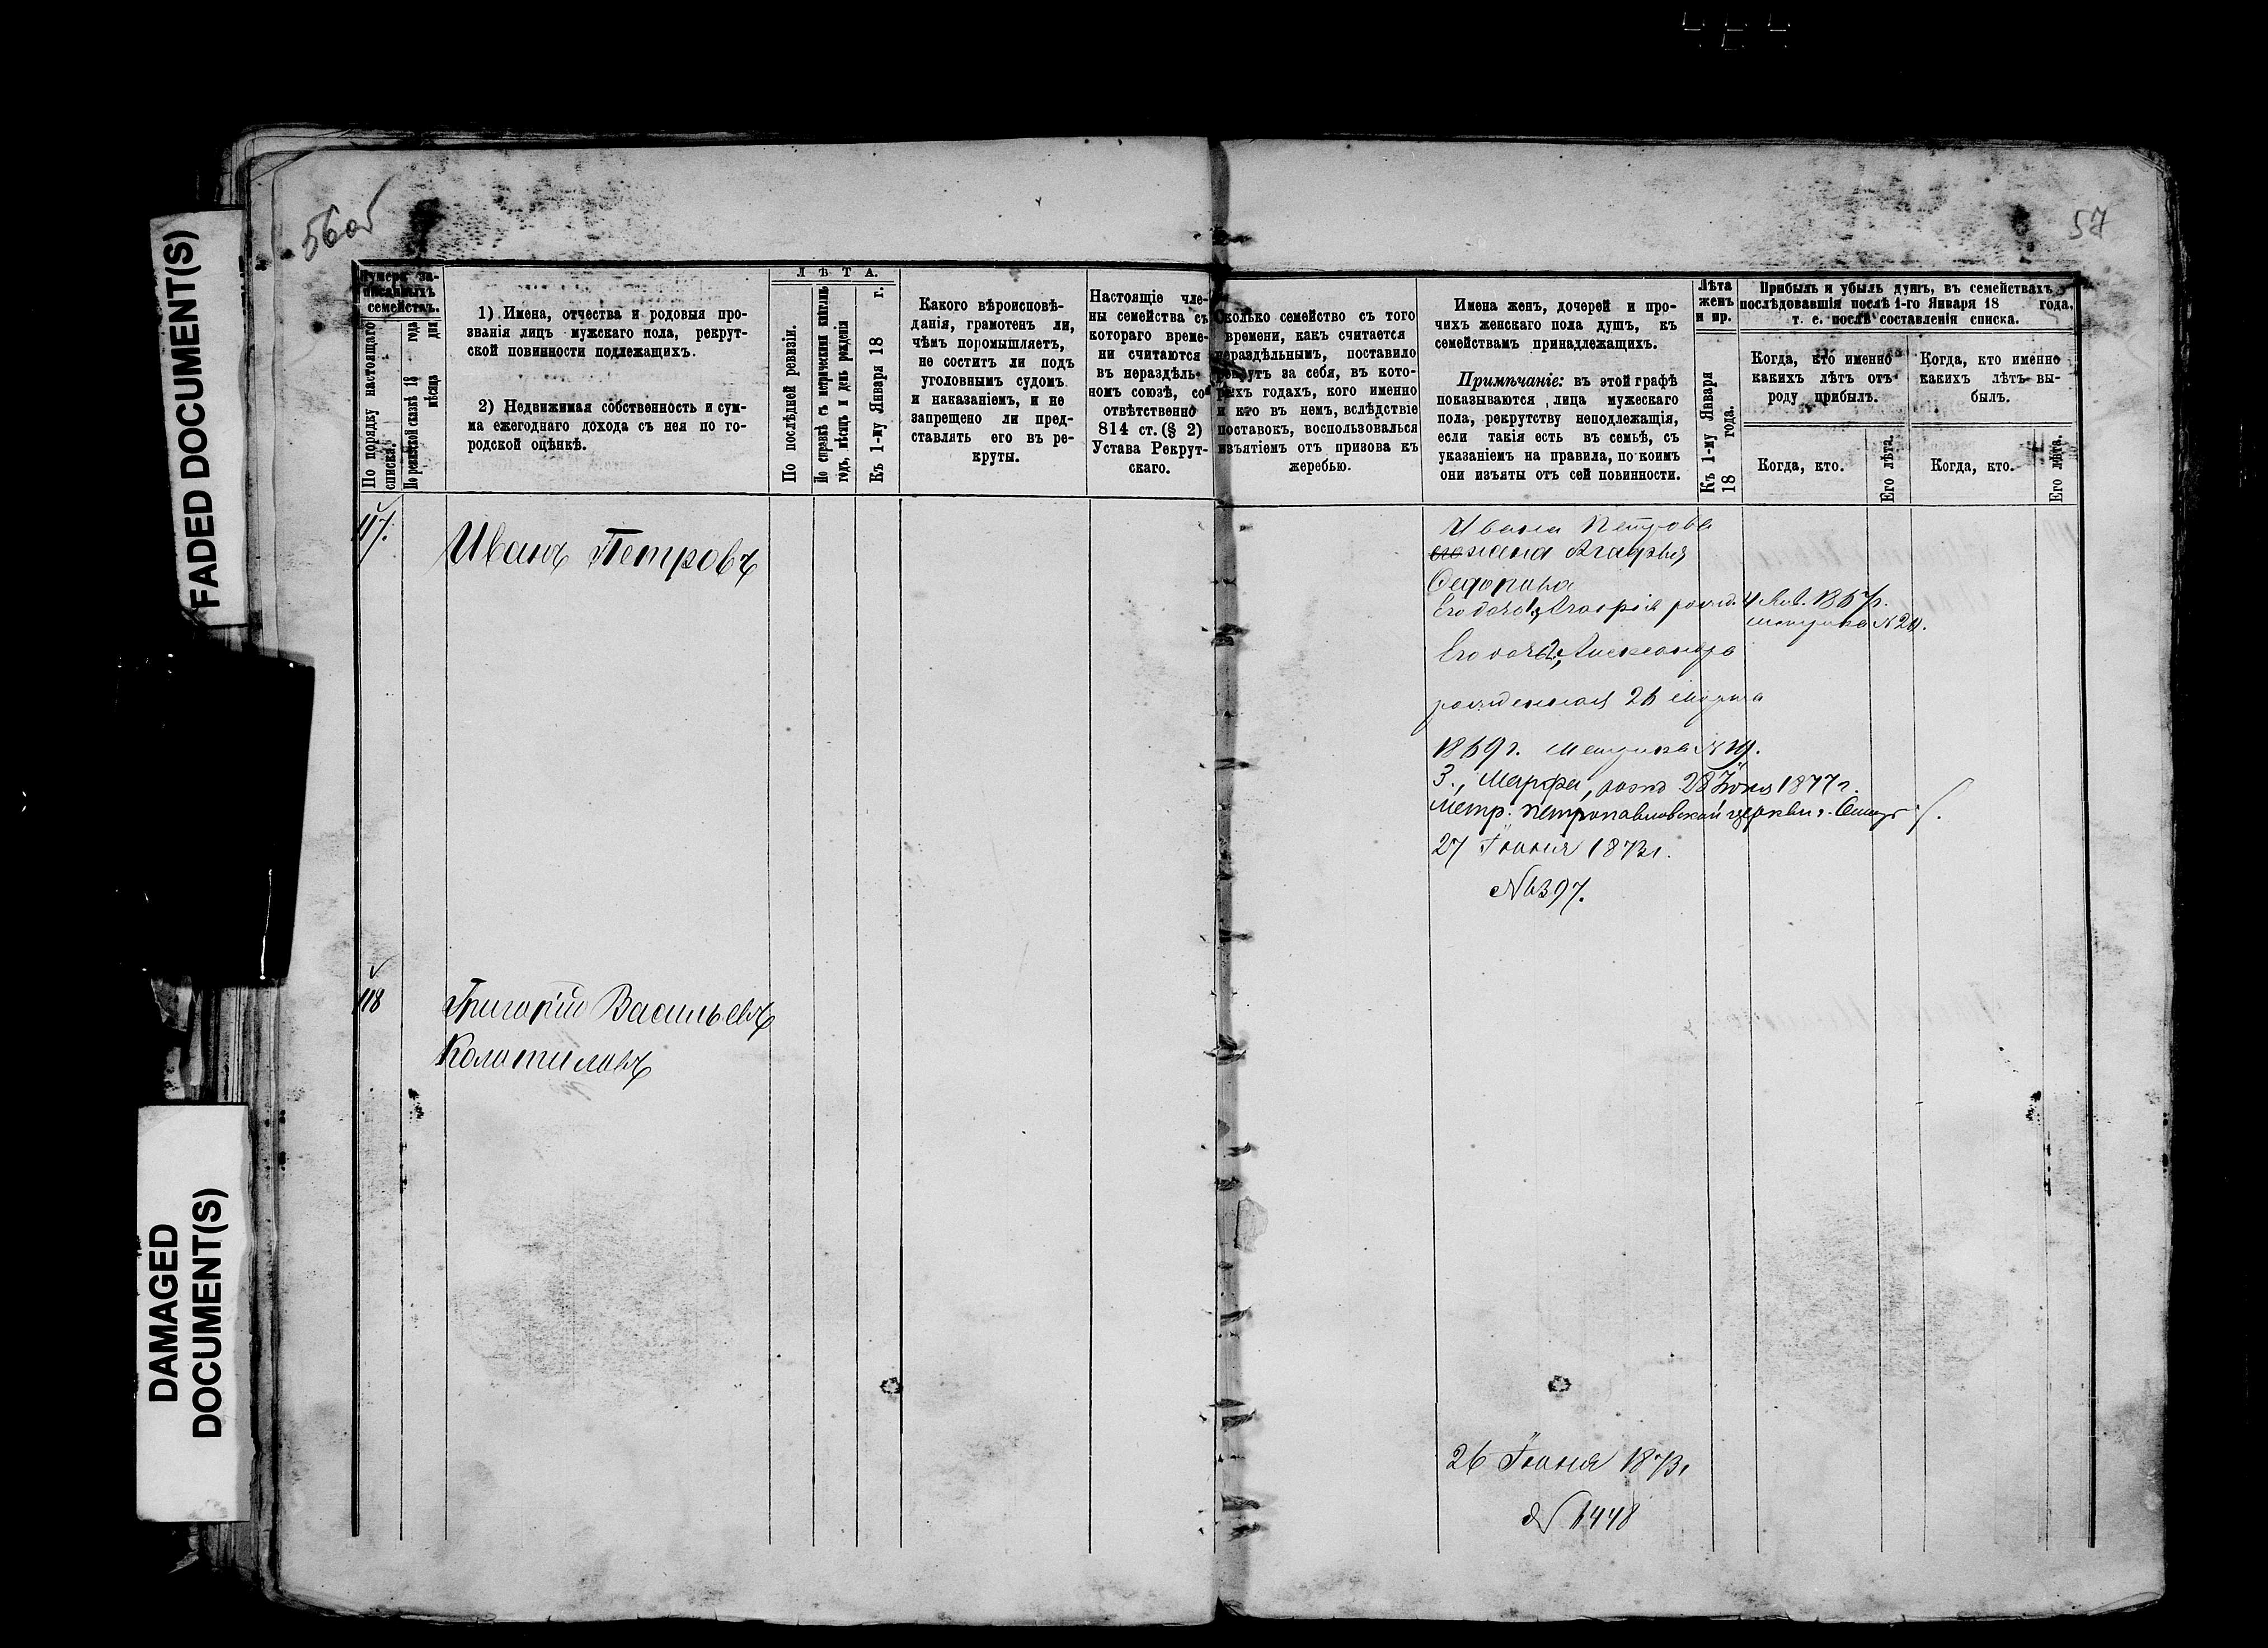 FADED DOCUMENT(S)
DAMAGED
DOCUMENT(S)
56об
57
Нумера за-
писанныхъ
семействъ.
По порядку настоящаго
списка.
По ревизской сказкѣ 18 года
мѣсяца дня
1) Имена, отчества и родовыя про-
званія лицъ мужскаго пола, рекрут-
ской повинности подлежащихъ.
2) Недвижимая собственность и сум-
ма ежегоднаго дохода съ нея по го-
родской оцѣнкѣ.
ЛѢТА.
По послѣдней ревизіи.
По справкѣ съ метрическими книгами
годъ, мѣсяцъ и день рожденія
Къ 1-му Января 18 г.
Какого вѣроисповѣ-
данія, грамотенъ ли,
чѣмъ поромышляетъ,
не соститъ ли подъ
уголовнымъ судомъ
и наказаніемъ, и не
запрещено ли пред-
ставлять его въ ре-
круты.
Настоящіе чле-
ны семейства съ
котораго време-
ни считаются
въ нераздѣль-
номъ союзѣ, со-
отвѣтственно
814 ст. (§ 2)
Устава Рекрут-
скаго.
Сколько семейство съ того
времени, какъ считается
нераздѣльнымъ, поставило
рекрутъ за себя, въ кото-
рыхъ годахъ, кого именно
и кто въ немъ, вслѣдствіе
поставокъ, воспользовался
изъятіемъ отъ призова къ
жеребью.
Имена женъ, дочерей и про-
чихъ женскаго пола душъ, къ
семействамъ принадлежащихъ.
Примѣчаніе: въ этой графѣ
показываются лица мужескаго
пола, рекрутству неподлежащія,
если такія есть въ семьѣ, съ
указаніемъ на правила, по коимъ
они изъяты отъ сей повинности.
Лѣта
женъ
и пр.
Къ 1-му Января
18 года.
Прибыль и убыль душъ, въ семействахъ
послѣдовавшія послѣ 1-го Января 18 года.
т. е. послѣ составленія списка.
Когда, кто именно
какихъ лѣтъ отъ
роду прибылъ.
Когда, кто именно
какихъ лѣтъ вы-
былъ.
Когда, кто.
Его лѣта.
Когда, кто.
Его лѣта.
117.
Иванъ Петровъ
Ивана Петрова
его жена
Федорова
Его дочь 1, рожд. 4 1867г.
метрика N 20.
Его дочь 2, Александра
рожденная 26 Марта
1869г. метрика N
3., Марфа, рожд 28 Іюня 1877г.
Метр. Петропавловской церкви г.
27 Іюня 1873г.
N 6397.
118
Григорій Васильевъ
Колотиловъ
26 Іюня 1873г
N 6448